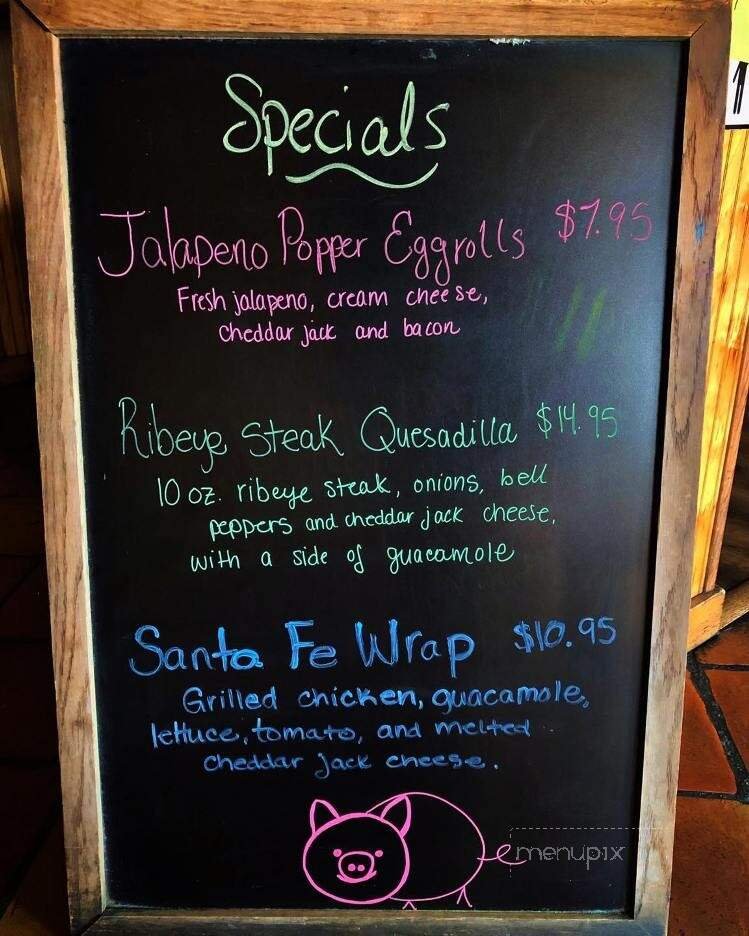 Specials
Jalapeno Popper Eggrolls $7.95
Fresh jalapeno, cream cheese,
cheddar jack and bacon
Ribeye Steak Quesadilla $14.95
10 oz. ribeye steak, onions, bell
peppers and cheddar jack cheese,
with a side of guacamole
Santa Fe Wrap $10.95
Grilled chicken, guacamole,
lettuce, tomato, and melted
cheddar jack cheese.
menupix